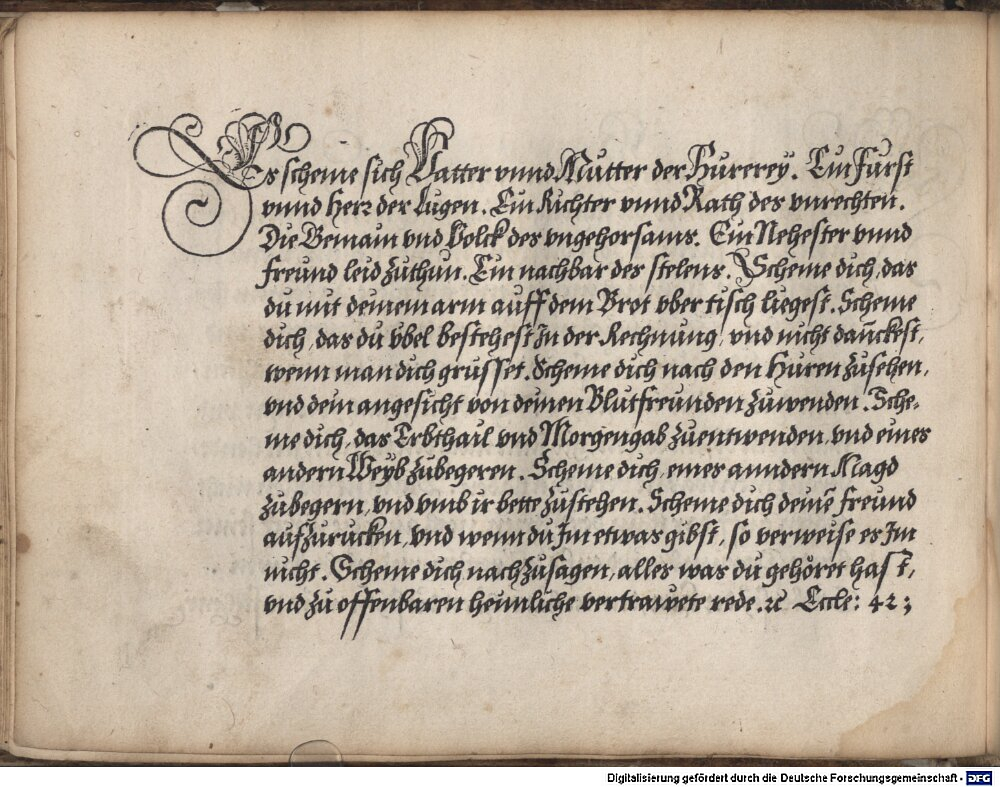 Es scheme sich Vatter vnnd Mutter der Hurerey. Ein Fürst
vnnd Herr der Lugen. Ein Richter vnnd Rath des vnrechten.
Die Gemain vnd Volck des vngehorsams. Ein Nehester vnnd
freund leid zuthun. Ein nachbar des stelens. Scheme dich, das
du mit deinem arm auff dem Brot vber tisch liegest. Scheme
dich, das du vbel bestehest In der Rechnung, vnd nicht danckest,
wenn man dich grüsset. Scheme dich nach den Huren zusehen,
vnd dein angesicht von deinen Blutfreunden zuwenden. Sche-
me dich, das Erbthail vnd Morgengab zuentwenden, vnd eines
andern Weyb zubegeren. Scheme dich, eines anndern Magd
zubegern, vnd vmb ir bette zustehen. Scheme dich deinē freund
aufzurucken, vnd wenn du Im etwas gibst, so verweise es Im
nicht. Scheme dich nachzusagen, alles was du gehöret hast,
vnd zu offenbaren heimliche vertrawete rede. ꝛc Eccle: 42;
Digitalisierung gefördert durch die Deutsche Forschungsgemeinschaft - DFG